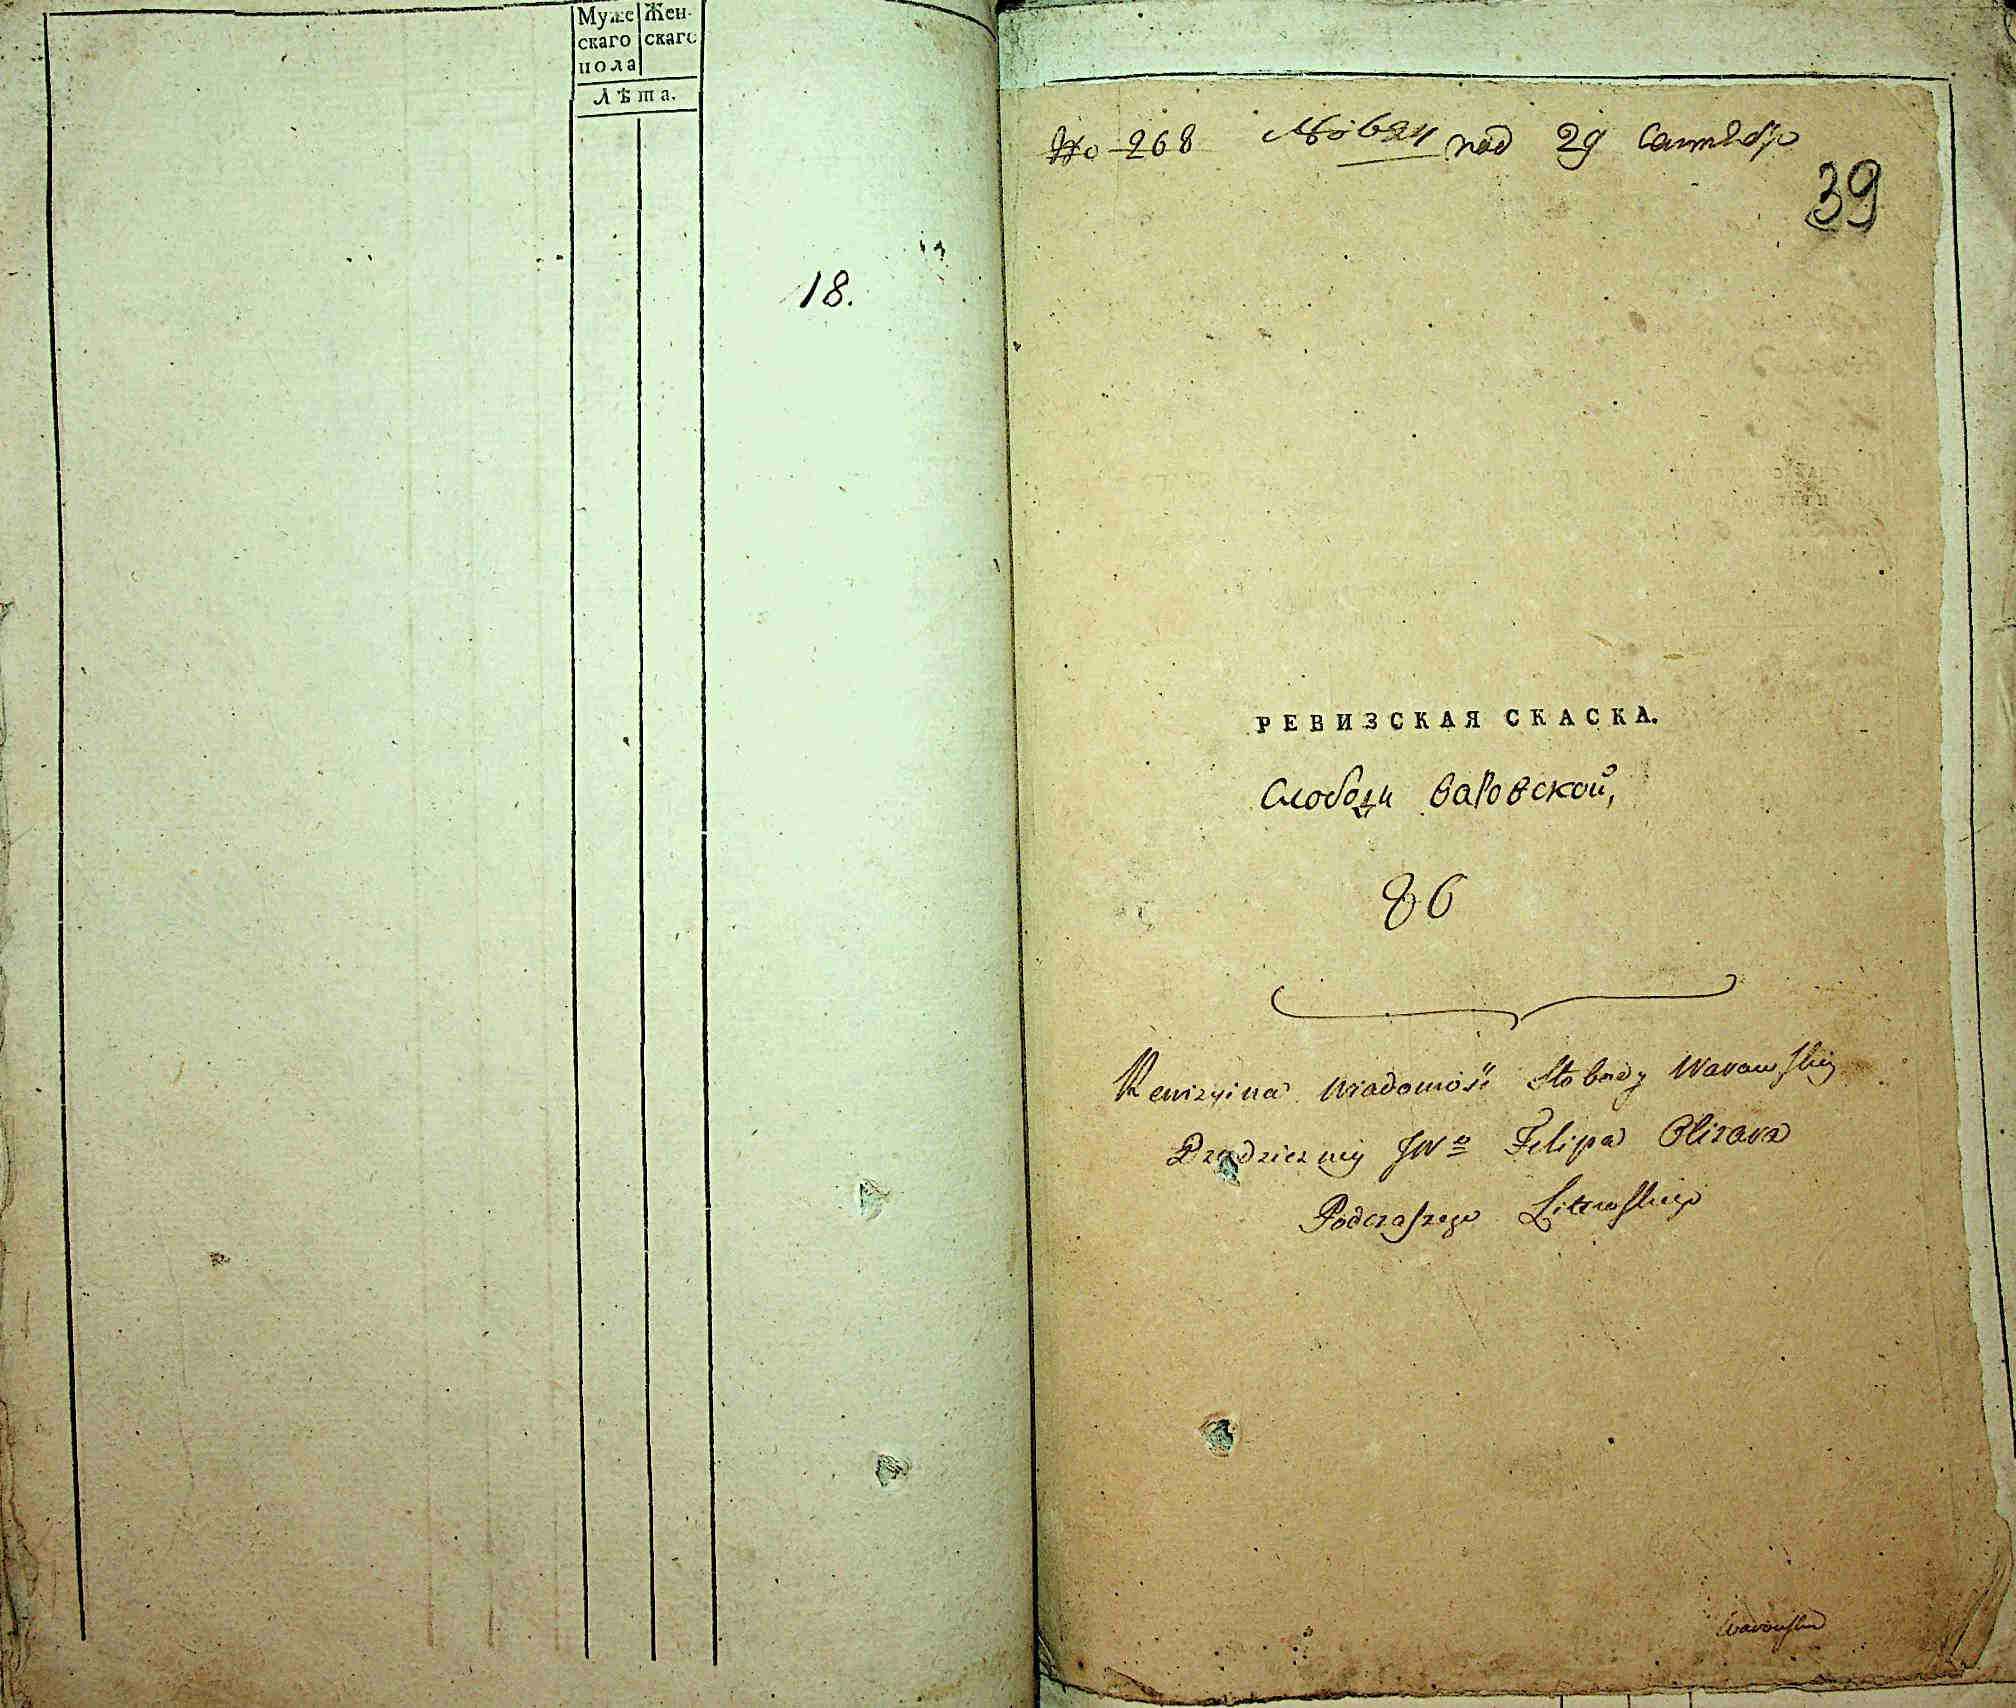 Муже Жен-
скаго скаго
пола
Лѣта.
18.
No 268 под 29 Сентябр
39
РЕВИЗСКАЯ СКАСКА.
Слободи Варовской,
86
Rewizyina Wiadomość Słobody Warowskiey
Dziedziczney JWo Felipa Olizara
Podczaszego Litewskiego